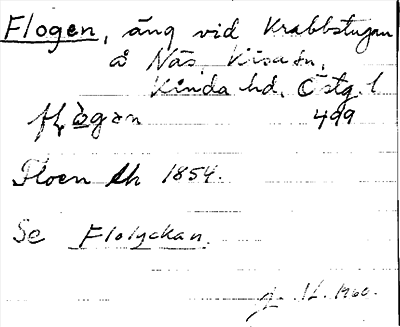 Flogen, äng vid Krabbstugan
å Näs, Kisa sn,
Kinda hd, Östg. l
flògən 499
Floen Lh 1854.
Se Flolyckan.
1960.